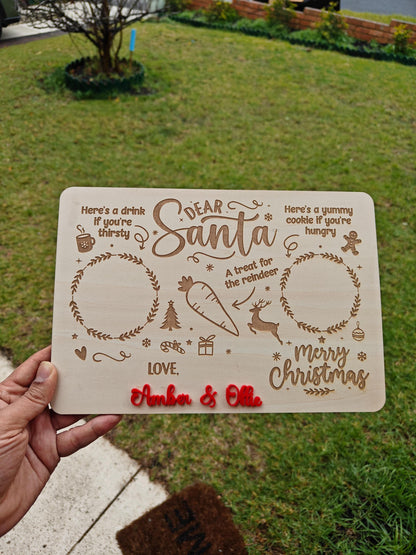 DEAR
Santa
Here's a drink
if you're
thirsty
Here's a yummy
cookie if you're
hungry
A treat for
the reindeer
Merry
Christmas
LOVE,
Amber & Ollie